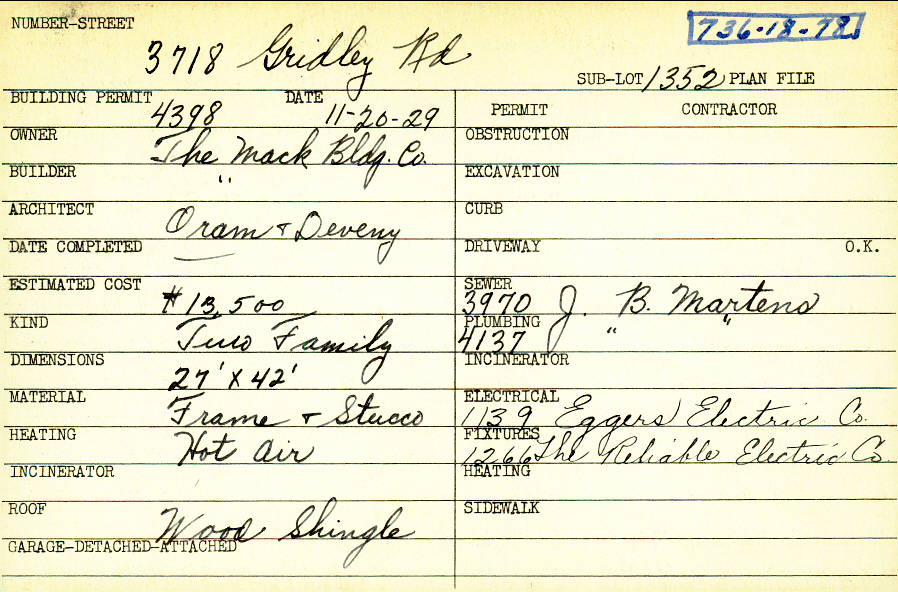 NUMBER-STREET
736-18-78
3718 Gridley Rd
SUB-LOT 1352 PLAN FILE
BUILDING PERMIT 4398 DATE 11-20-29
PERMIT CONTRACTOR
OWNER The Mack Bldg. Co.
OBSTRUCTION
BUILDER "
EXCAVATION
ARCHITECT Oram & Deveny
CURB
DATE COMPLETED
DRIVEWAY O.K.
ESTIMATED COST $13,500
SEWER 3970 J. B. Martens
KIND Two Family
PLUMBING 4137 " "
DIMENSIONS 27' X 42'
INCINERATOR
MATERIAL Frame & Stucco
ELECTRICAL 1139 Eggers Electric Co.
HEATING Hot Air
FIXTURES 1266 The Reliable Electric Co
INCINERATOR
HEATING
ROOF Wood Shingle
SIDEWALK
GARAGE-DETACHED-ATTACHED